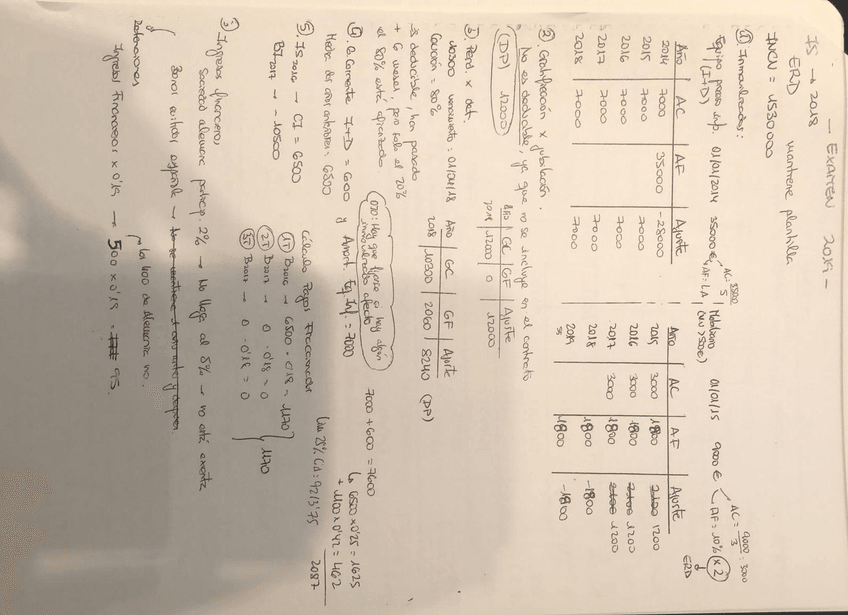 - EXAMEN 2019 -
IS → 2018
ERD mantiene plantilla
INCN = 4530000
① Inmovilizados:
Equipo proceso inf. 01/01/2014 35000€ AC = 35000/5 AF: LA
(I+D)
Mobiliario 01/01/15 9000€ AC = 9000/3 = 3000 AF = 10% x 2
ERD
Año | AC | AF | Ajuste
2014 7000 35000 -28000
2015 7000 7000
2016 7000 7000
2017 7000 7000
2018 7000 7000
Año | AC | AF | Ajuste
2015 3000 1800 1200
2016 3000 1800 1200
2017 3000 1800 1200
2018 1800 -1800
2019 1800 -1800
② Gratificación x jubilación.
No es deducible, ya que no se incluye en el contrato
(DP) 12000
Año | GC | GF | Ajuste
2018 | 12000 | 0 | 12000
③ Perd. x det.
10300 vencimiento: 01/04/18
Garantía = 80%
→ deducible, han pasado
+ 6 meses, pero solo el 20%
el 80% está afianzado
Año | GC | GF | Ajuste
2018 | 10300 | 2060 | 8240 (DP)
④ G. Corriente I+D = 600 y Amort. Eq. Inf. = 7000
Media dos años anteriores: 6500
OJO: Hay que fijarse si hay algún inmovilizado afecto
7000 + 600 = 7600
6500 x 0'25 = 1625
+ 1100 x 0'42 = 462
2087
⑤. IS 2016 → CI = 6500
BI 2017 → -10500
Cálculo Pagos Fraccionados
1T B2016 → 6500 · 0'18 = 1170
2T B2017 → 0 · 0'18 = 0
3T B2017 → 0 · 0'18 = 0
1170
Lim 25% CI: 9213'75
③ Ingresos financieros
sociedad alemana particip. 2% → No llega al 5% → no está exenta
Retenciones
Ingresos Financieros x 0'19 → 500 x 0'19 = 95.
Los 400 de Alemania no.